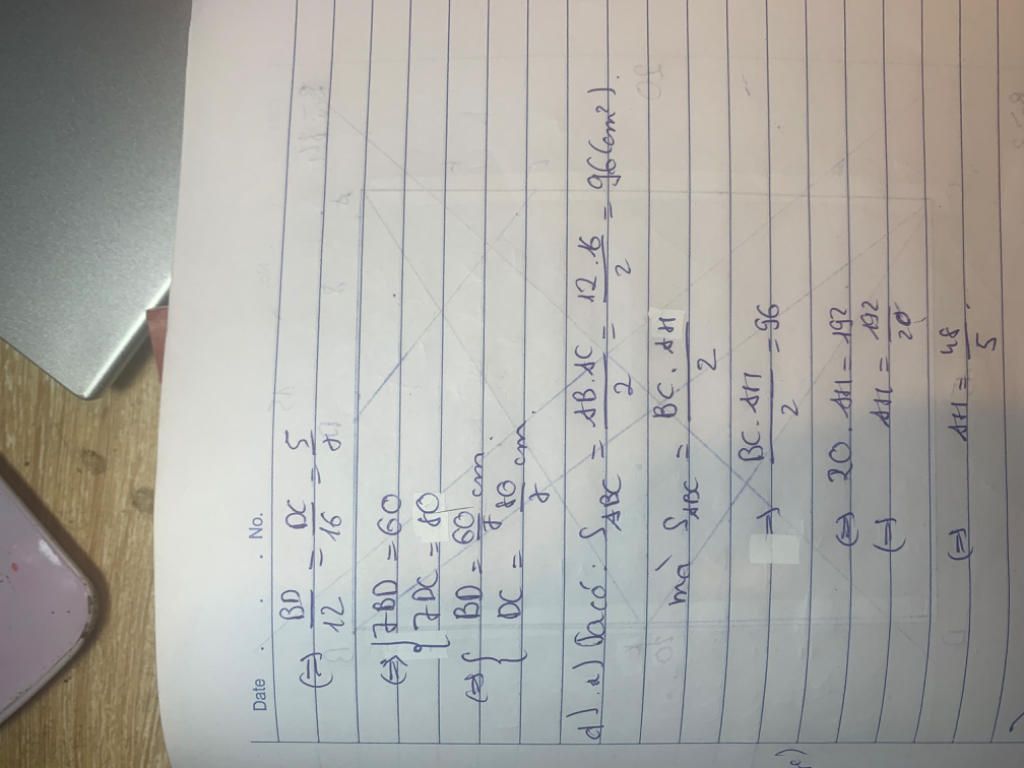 Date . . . No.
(=) BD/12 = DC/16 = 5/7
(=>) { 7BD = 60
7DC = 80
(=>) { BD = 60/7 cm
DC = 80/7 cm.
d) 2) Ta có: S_ABC = AB.AC/2 = 12.16/2 = 96 (cm²).
mà S_ABC = BC.AH/2
=) BC.AH/2 = 96
(=) 20.AH = 192
(=) AH = 192/20
(=) AH = 48/5.